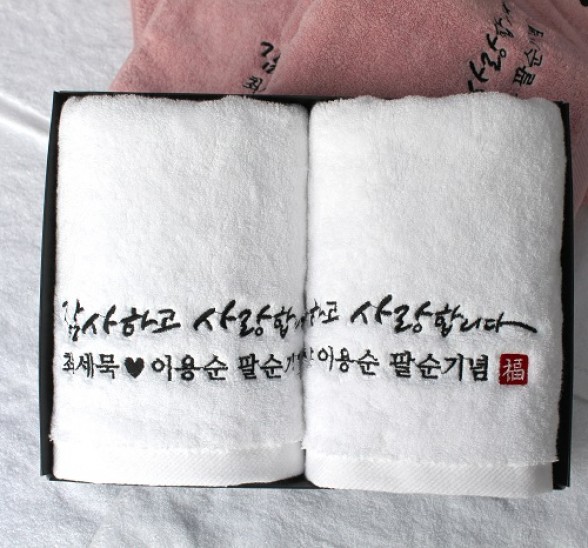 감사하고 사랑합
최세묵♥이용순 팔순기
하고 사랑합니다
이용순 팔순기념 福
사랑합
팔순